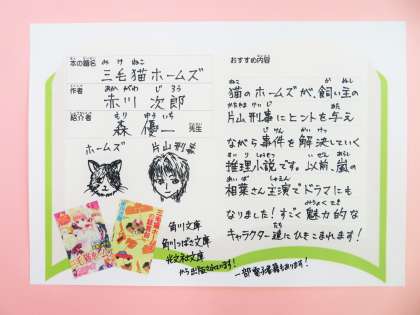 本の題名 みけねこ
三毛猫ホームズ
作者 あかがわ じろう
赤川 次郎
紹介者 もり ゆういち
森 優一 先生
ホームズ
片山刑事
角川文庫
角川つばさ文庫
光文社文庫
から出版されています!
一部電子書籍もあります!
おすすめ内容
ねこ かぬし
猫のホームズが、飼い主の
かたやまけいじ あた
片山刑事にヒントを与え
じけん かいけつ
ながら事件を解決していく
すいりしょうせつ いぜん あらし
推理小説です。以前、嵐の
あいば しゅえん
相葉さん主演でドラマにも
みりょくてき
なりました!すごく魅力的な
たち
キャラクター達にひきこまれます!